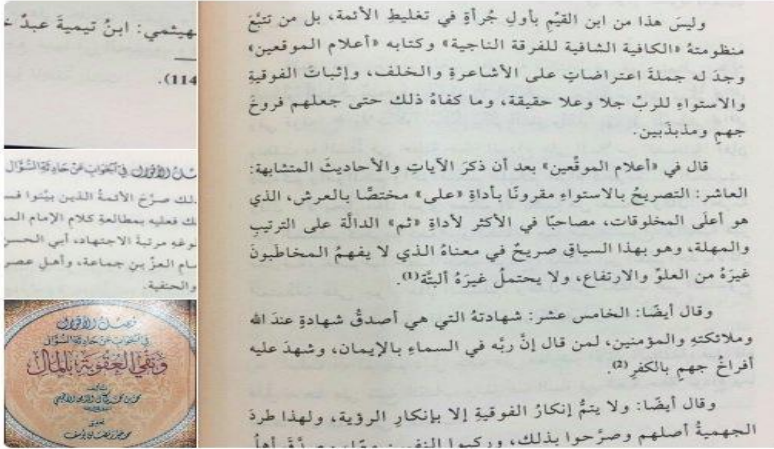 وليسَ هذا من ابن القيِّمِ بأولِ جُرأةٍ في تغليطِ الأئمة، بل من تتبَّعَ
منظومتهُ «الكافية الشافية للفرقة الناجية» وكتابه «أعلام الموقعين»
وجدَ له جملةَ اعتراضاتٍ على الأشاعرةِ والخلف، وإثباتَ الفوقيةِ
والاستواءِ للربِّ جلا وعلا حقيقة، وما كفاهُ ذلك حتى جعلهم فروخَ
جهمٍ ومذبذَبين.
قال في «أعلام الموقِّعين» بعد أن ذكرَ الآياتِ والأحاديثَ المتشابهة:
العاشر: التصريحُ بالاستواءِ مقرونًا بأداةِ «على» مختصًّا بالعرش، الذي
هو أعلَى المخلوقات، مصاحبًا في الأكثر لأداةِ «ثم» الدالَّة على الترتيبِ
والمهلة، وهو بهذا السياقِ صريحٌ في معناهُ الذي لا يفهمُ المخاطَبونَ
غيرَهُ من العلوِّ والارتفاع، ولا يحتملُ غيرَهُ ألبتَّة(1).
وقال أيضًا: الخامس عشر: شهادتهُ التي هي أصدقُ شهادةٍ عندَ الله
وملائكتهِ والمؤمنين، لمن قال إنَّ ربَّه في السماءِ بالإيمان، وشهدَ عليه
أفراخُ جهمٍ بالكفرِ(2).
وقال أيضًا: ولا يتمُّ إنكارُ الفوقيةِ إلا بإنكارِ الرؤية، ولهذا طردَ
الجهميةُ أصلهم وصرَّحوا بذلك، وركبوا
هيثمي: ابنُ تيميةَ عبدٌ
(114).
الأقوال في الجواب عن حادثة السؤال
لك صرَّحَ الأئمةُ الذين بيَّنوا
ك فعليه بمطالعةِ كلام الإمام
وغه مرتبةَ الاجتهاد، أبي الحسن
العزُّ بن جماعة، وأهل عصر
والحنفية.
فصل الأقوال
في الجواب عن حادثة السؤال
ونفي العقوبة بالمال